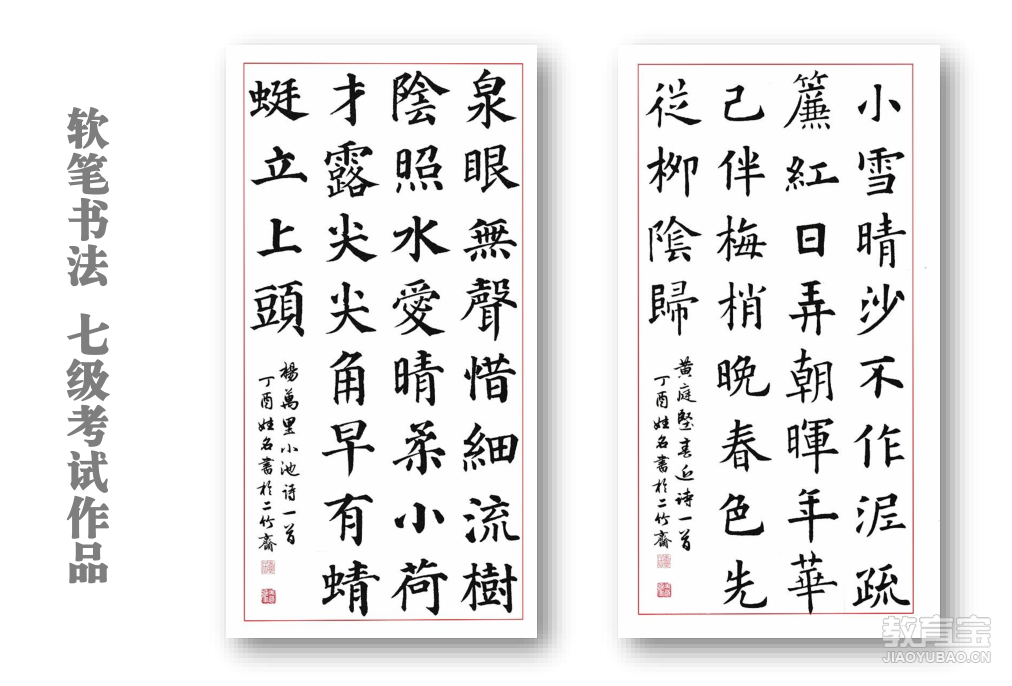 软笔书法 七级考试作品
泉眼無聲惜細流樹
陰照水愛晴柔小荷
才露尖尖角早有蜻
蜓立上頭
楊萬里小池诗一首
丁酉姓名書於二竹齋
小雪晴沙不作泥疏
簾紅日弄朝暉年華
已伴梅梢晚春色先
從柳陰歸
黄庭堅春近诗一首
丁酉姓名書於二竹齋
教育宝
JIAOYUBAO.CN